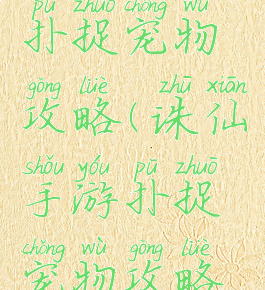 pū zhuō chǒng wù
扑捉宠物
gōng lüè zhū xiān
攻略(诛仙
shǒu yóu pū zhuō
手游扑捉
chǒng wù gōng lüè
宠物攻略